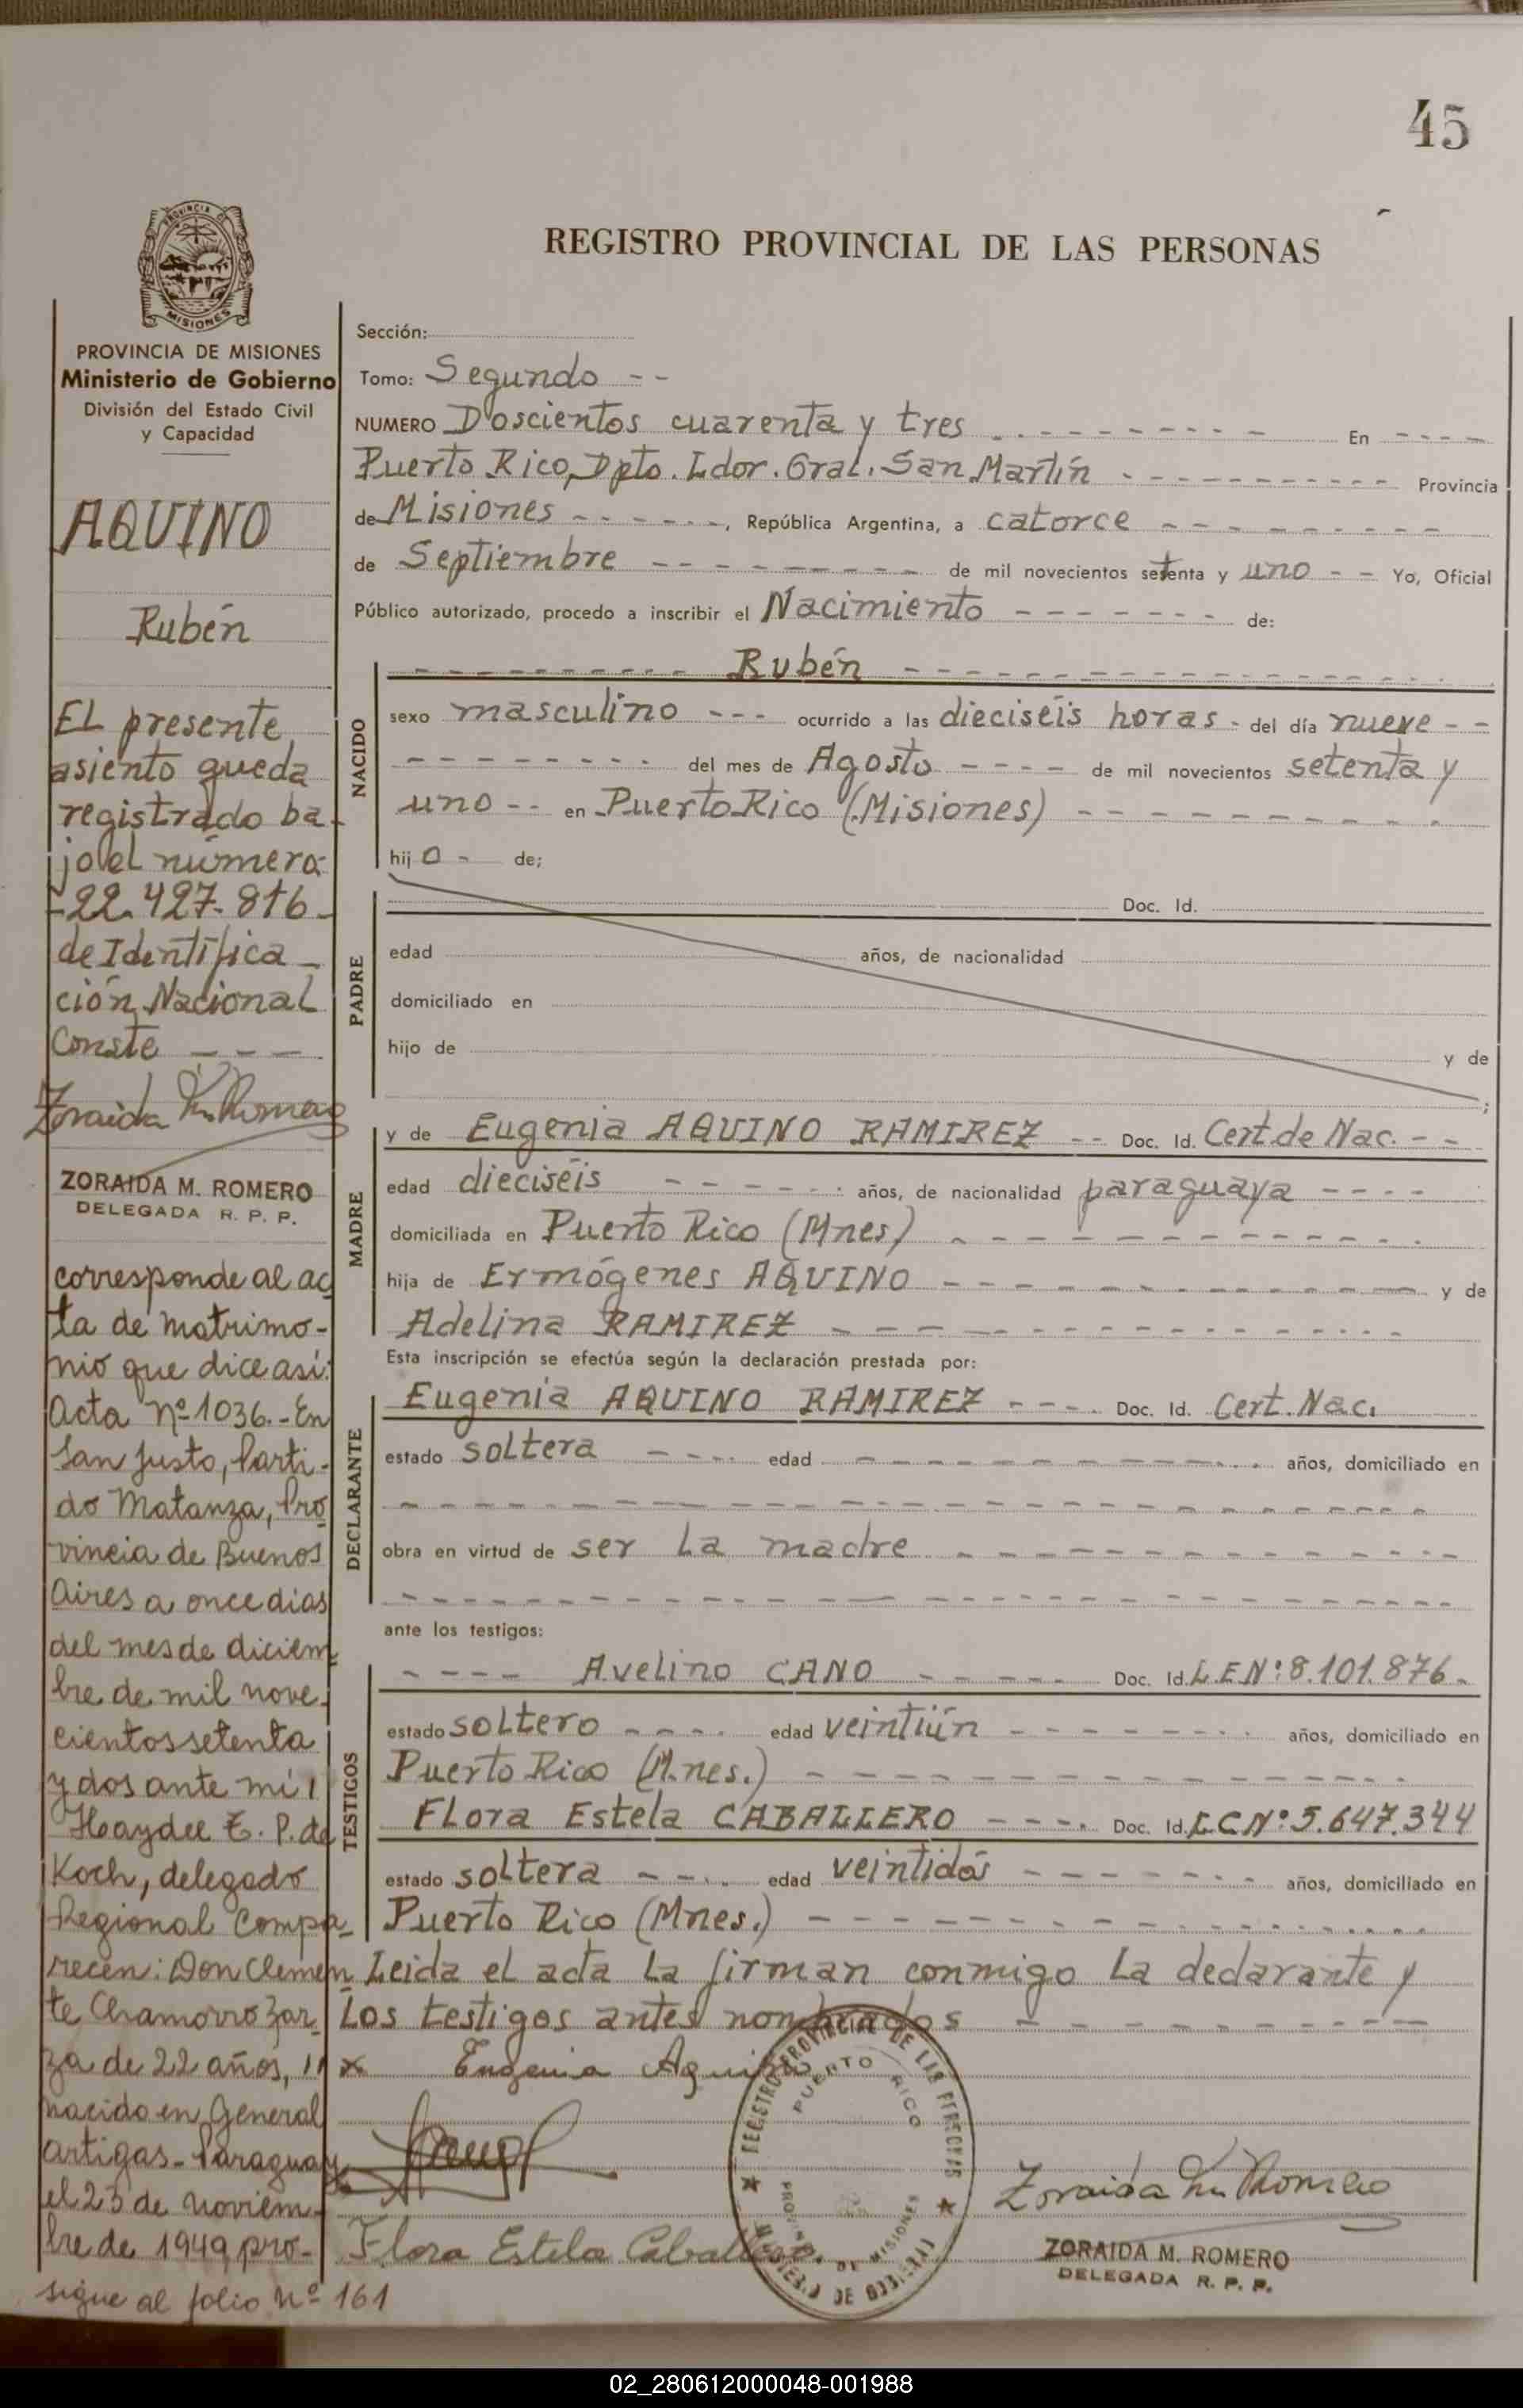 45
REGISTRO PROVINCIAL DE LAS PERSONAS
PROVINCIA DE MISIONES
Ministerio de Gobierno
División del Estado Civil
y Capacidad
AQUINO
Rubén
El presente
asiento queda
registrado ba-
jo el número
-22.427.816-
de Identifica-
ción Nacional
Conste ---
Zoraida M. Romero
ZORAIDA M. ROMERO
DELEGADA R. P. P.
corresponde al ac
ta de matrimo-
nio que dice así:
Acta Nº 1036.- En
San Justo, Parti-
do Matanza, Pro
vincia de Buenos
Aires a once dias
del mes de diciem
bre de mil nove-
cientos setenta
y dos ante mí
Haydee E. P. de
Koch, delegado
Regional Compa-
recen: Don Clemen
te Chamorro Zar-
za de 22 años,
nacido en General
Artigas - Paraguay
el 23 de noviem-
bre de 1949 pro-
sigue al folio Nº 161
Sección:
Tomo: Segundo --
NUMERO Doscientos cuarenta y tres --------- En ----
Puerto Rico, Dpto. Ldor. Gral. San Martín ---------- Provincia
de Misiones ------, República Argentina, a catorce ---------
de Septiembre --------- de mil novecientos setenta y uno -- Yo, Oficial
Público autorizado, procedo a inscribir el Nacimiento ------- de:
NACIDO
---------- Rubén ----------------
sexo masculino --- ocurrido a las dieciséis horas - del día nueve --
--------- del mes de Agosto ---- de mil novecientos setenta y
uno -- en Puerto Rico (Misiones) ----------
hijo - de;
PADRE
Doc. Id.
edad años, de nacionalidad
domiciliado en
hijo de y de
;
MADRE
y de Eugenia AQUINO RAMIREZ -- Doc. Id. Cert de Nac. --
edad dieciséis ------ años, de nacionalidad paraguaya ----
domiciliada en Puerto Rico (Mnes) ------------
hija de Ermógenes AQUINO ------------ y de
Adelina RAMIREZ --------------
Esta inscripción se efectúa según la declaración prestada por:
DECLARANTE
Eugenia AQUINO RAMIREZ ---- Doc. Id. Cert. Nac.
estado soltera ---- edad ----------- años, domiciliado en
--------------------
obra en virtud de ser la madre ------------
--------------------
ante los testigos:
TESTIGOS
---- Avelino CANO ----- Doc. Id. L.E Nº: 8.101.876-
estado soltero ---- edad veintiún -------- años, domiciliado en
Puerto Rico (M.nes.) --------------
Flora Estela CABALLERO ---- Doc. Id. L C Nº: 5.647.344
estado soltera ---- edad veintidós -------- años, domiciliado en
Puerto Rico (Mnes.) --------------
Leida el acta la firman conmigo la declarante y
los testigos antes nombrados ----------
x Eugenia Aquino
REGISTRO PROVINCIAL DE LAS PERSONAS
PUERTO RICO
PROVINCIA DE MISIONES
Flora Estela Caballero.
Zoraida M. Romero
ZORAIDA M. ROMERO
DELEGADA R. P. P.
02_280612000048-001988